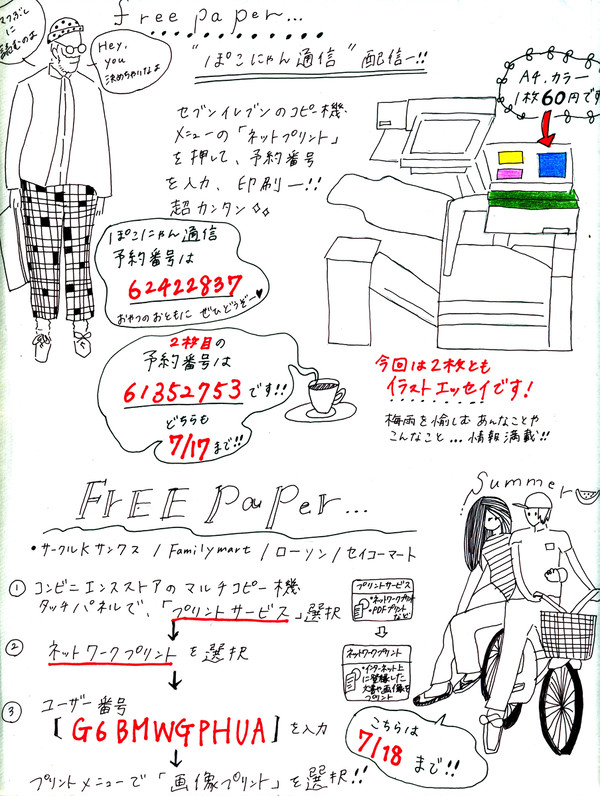 free paper...
マフぶとに
読むのよ
Hey,
you
決めちゃいなよ
"ぽこにゃん通信" 配信ー!!
A4.カラー
1枚60円です
セブンイレブンのコピー機
メニューの「ネットプリント」
を押して、予約番号
を入力、印刷ー!!
超カンタン
ぽこにゃん通信
予約番号は
62422837
おやつのおともに ぜひどうぞー♥
2枚目の
予約番号は
61352753です!!
どちらも
7/17まで!!
今回は2枚とも
イラストエッセイです!
梅雨を愉しむ あんなことや
こんなこと...情報満載!!
FrEE PaPer...
Summer
・サークルKサンクス / Familymart / ローソン / セイコーマート
① コンビニエンスストアのマルチコピー機
タッチパネルで、「プリントサービス」選択
プリントサービス
・ネットワークプリント
・PDFプリント
など
↓
② ネットワークプリント を選択
ネットワークプリント
・インターネット上
に登録した
文書や画像を
プリント
↓
③ ユーザー番号
[G6BMWGPHUA]を入力
こちらは
7/18
まで!!
↓
プリントメニューで「画像プリント」を選択!!